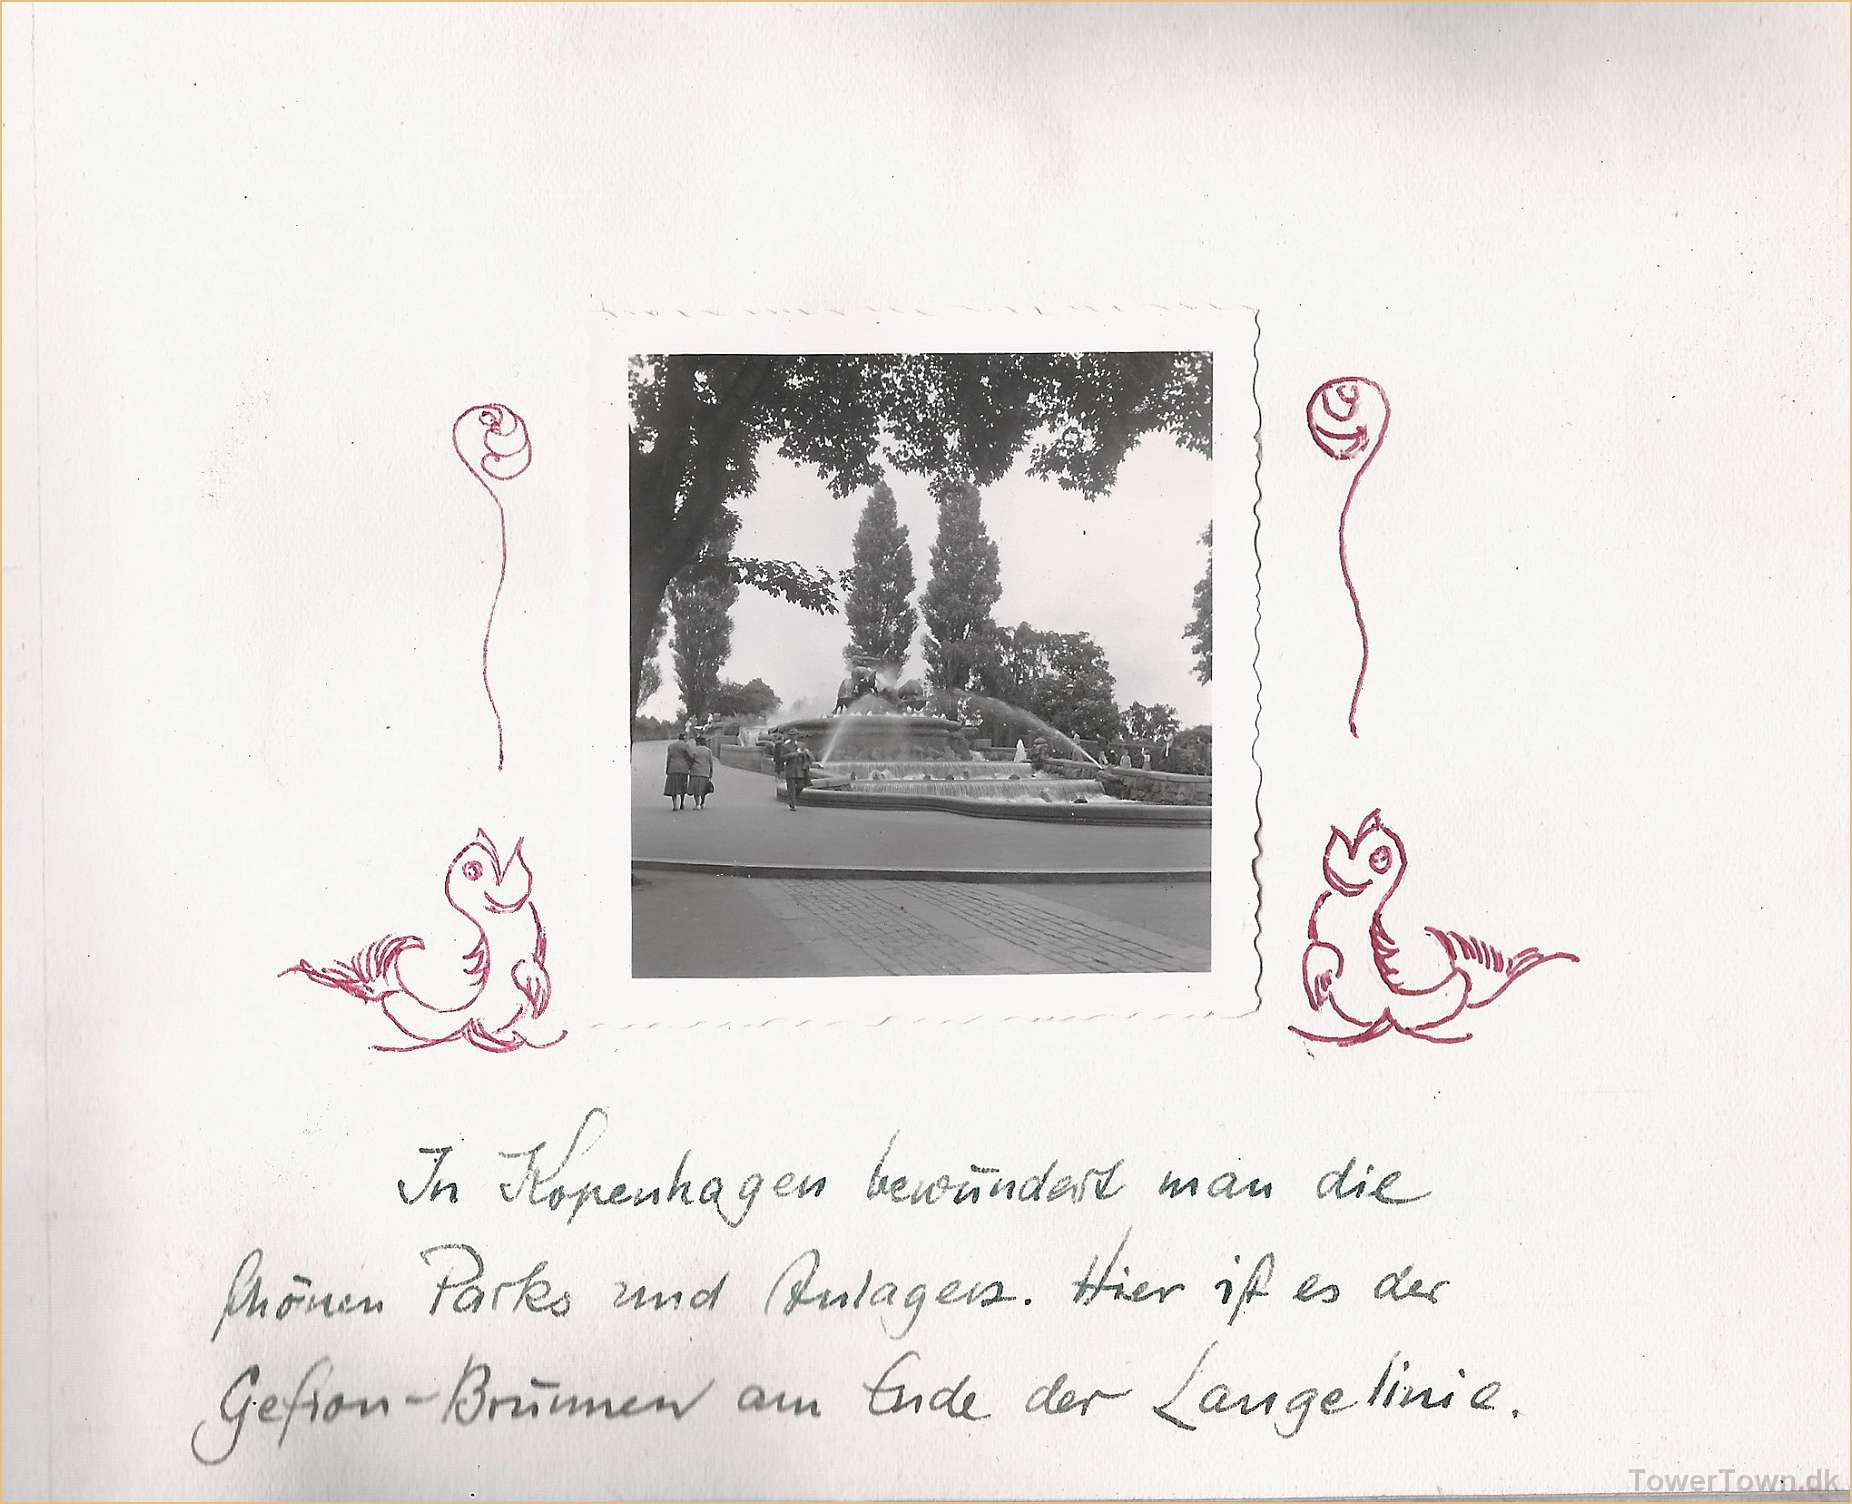 In Kopenhagen bewundert man die
schönen Parks und Anlagen. Hier ist es der
Gefion-Brunnen am Ende der Langelinie.
TowerTown.dk